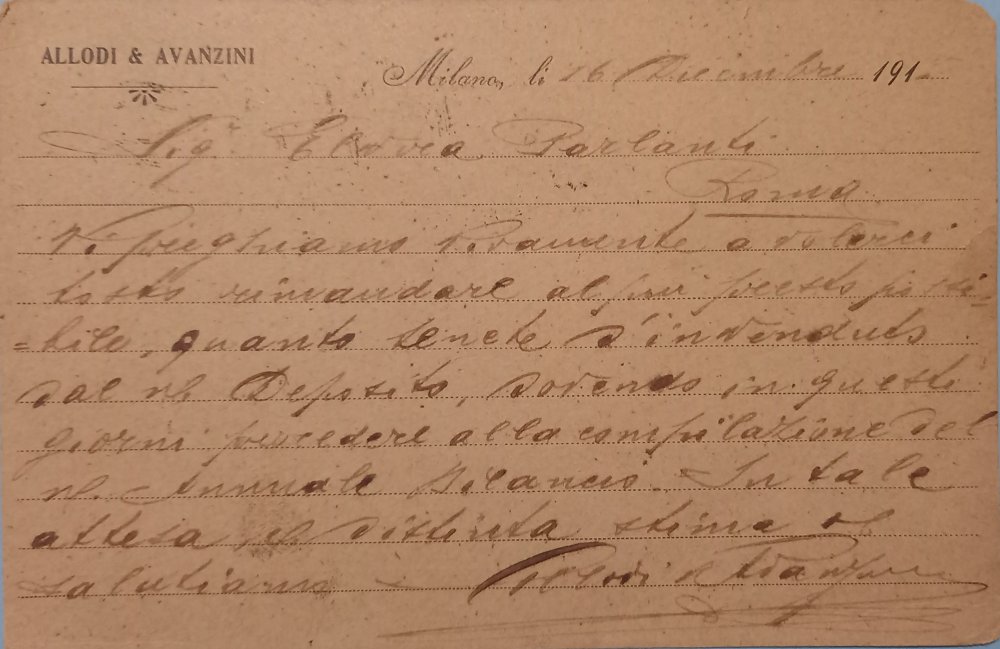 ALLODI & AVANZINI
Milano, li 16 Dicembre 191
Sig. Parlanti
Roma
Vi preghiamo vivamente a volerci
tosto rimandare al più presto possi=
=bile, quanto tenete d'invenduto
dal ns. Deposito, dovendo in questi
giorni procedere alla compilazione del
ns. Annuale Bilancio. In tale
attesa con distinta stima vi
salutiamo
Allodi & Avanzini